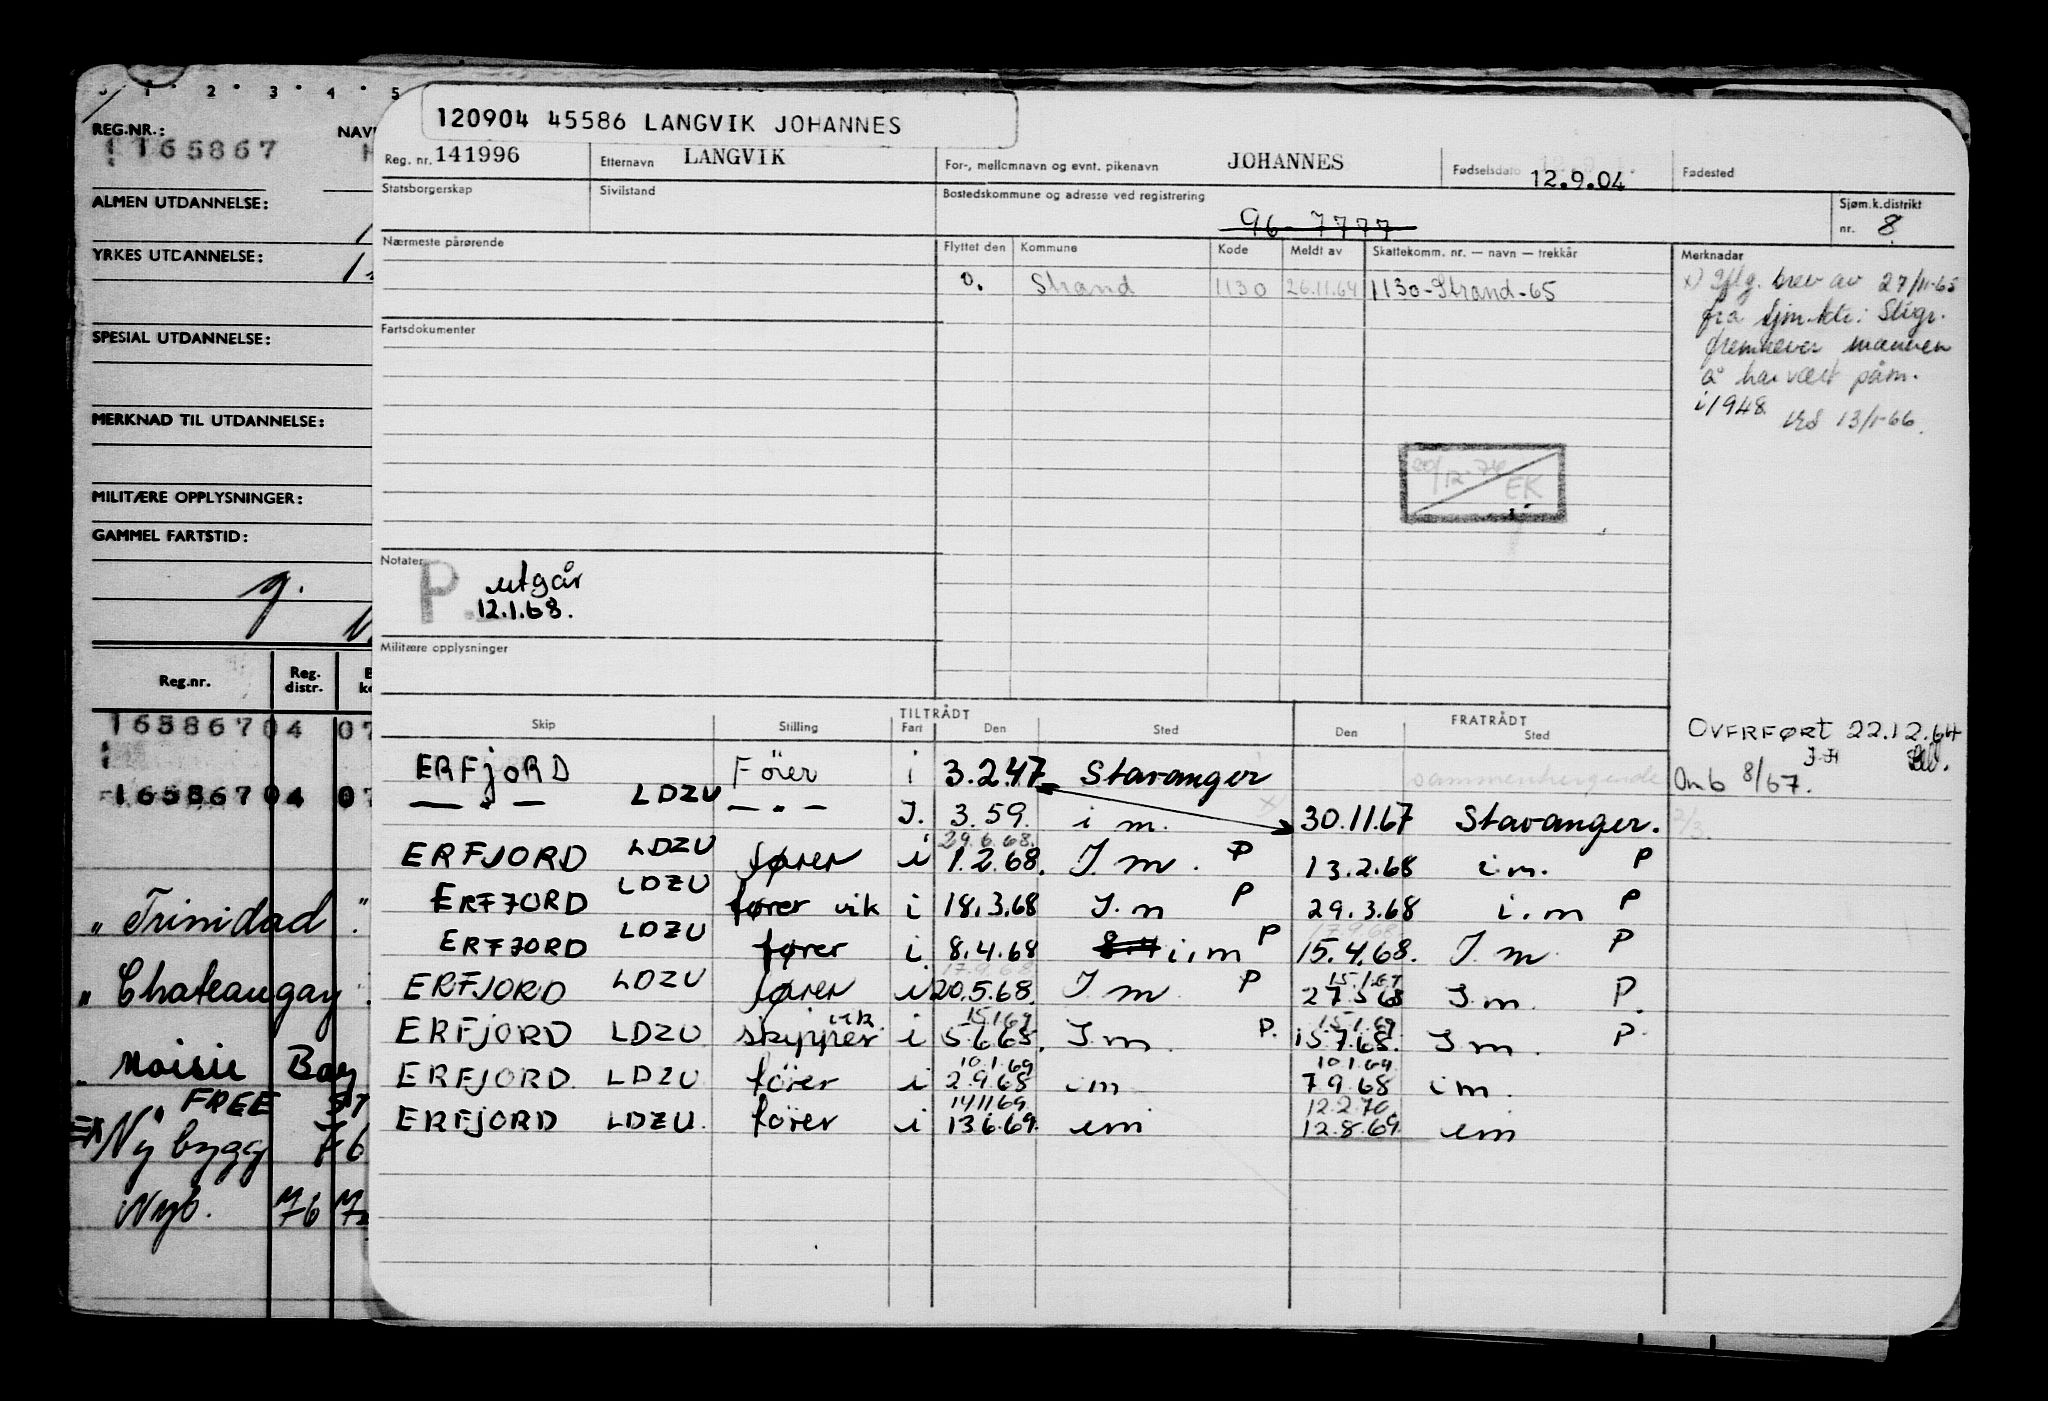 1 2 3 4 5
REG.NR.: NAV
165867
ALMEN UTDANNELSE:
YRKES UTDANNELSE:
SPESIAL UTDANNELSE:
MERKNAD TIL UTDANNELSE:
MILITÆRE OPPLYSNINGER:
GAMMEL FARTSTID:
g.
Reg.nr. Reg. distr.
165867 04 07
165867 04 07
„ Trinidad "
„ Chateaugay
„ Moisie Bay
FREE ST
Ny bygg 76
Nyb. 76
120904 45586 LANGVIK JOHANNES
Reg. nr. 141996 Etternavn LANGVIK For-, mellomnavn og evnt. pikenavn JOHANNES Fødselsdato 12.9.04 Fødested
Statsborgerskap Sivilstand Bostedskommune og adresse ved registrering Sjøm.k.distrikt
96-7777 nr. 8
Nærmeste pårørende Flyttet den Kommune Kode Meldt av Skattekomm. nr. — navn — trekkår Merknadar
0. Strand 1130 26.11.64 1130-Strand-65
x) Iflg. brev av 27/11-65
fra sjm.ktr. Stgr.
fremhever mannen
å ha vært påm.
i 1948 13/1-66.
Fartsdokumenter
20/12-74 EK
Notater
P. utgår
12.1.68.
Militære opplysninger
TILTRÅDT FRATRÅDT
Skip Stilling Fart Den Sted Den Sted
OVERFØRT 22.12.64
ERFJORD Förer i 3.2.47 Stavanger sammenhengende Omb 8/67.
— " — LDZU — " — J. 3.59. i m. x) 30.11.67 Stavanger. 2/3.
29.6.68.
ERFJORD LDZU fører i 1.2.68. I m. P 13.2.68 i.m. P
ERFJORD LDZU fører vik i 18.3.68 I.m P 29.3.68 i.m P
17.9.68
ERFJORD LDZU fører i 8.4.68 8.4 i.m P 15.4.68. I m P
17.9.68 15.1.69
ERFJORD LDZU fører i 20.5.68. I m P 27.5.68 I.m. P.
15.1.69 15.1.69
ERFJORD LDZU skipper vik. i 5.6.68. I.m. P. 15.7.68. I m. P.
10.1.69 10.1.69
ERFJORD. LDZU förer i 2.9.68 i m 7.9.68 i m.
14.11.69 12.2.70.
ERFJORD LDZU. förer i 13.6.69. i m 12.8.69 i m